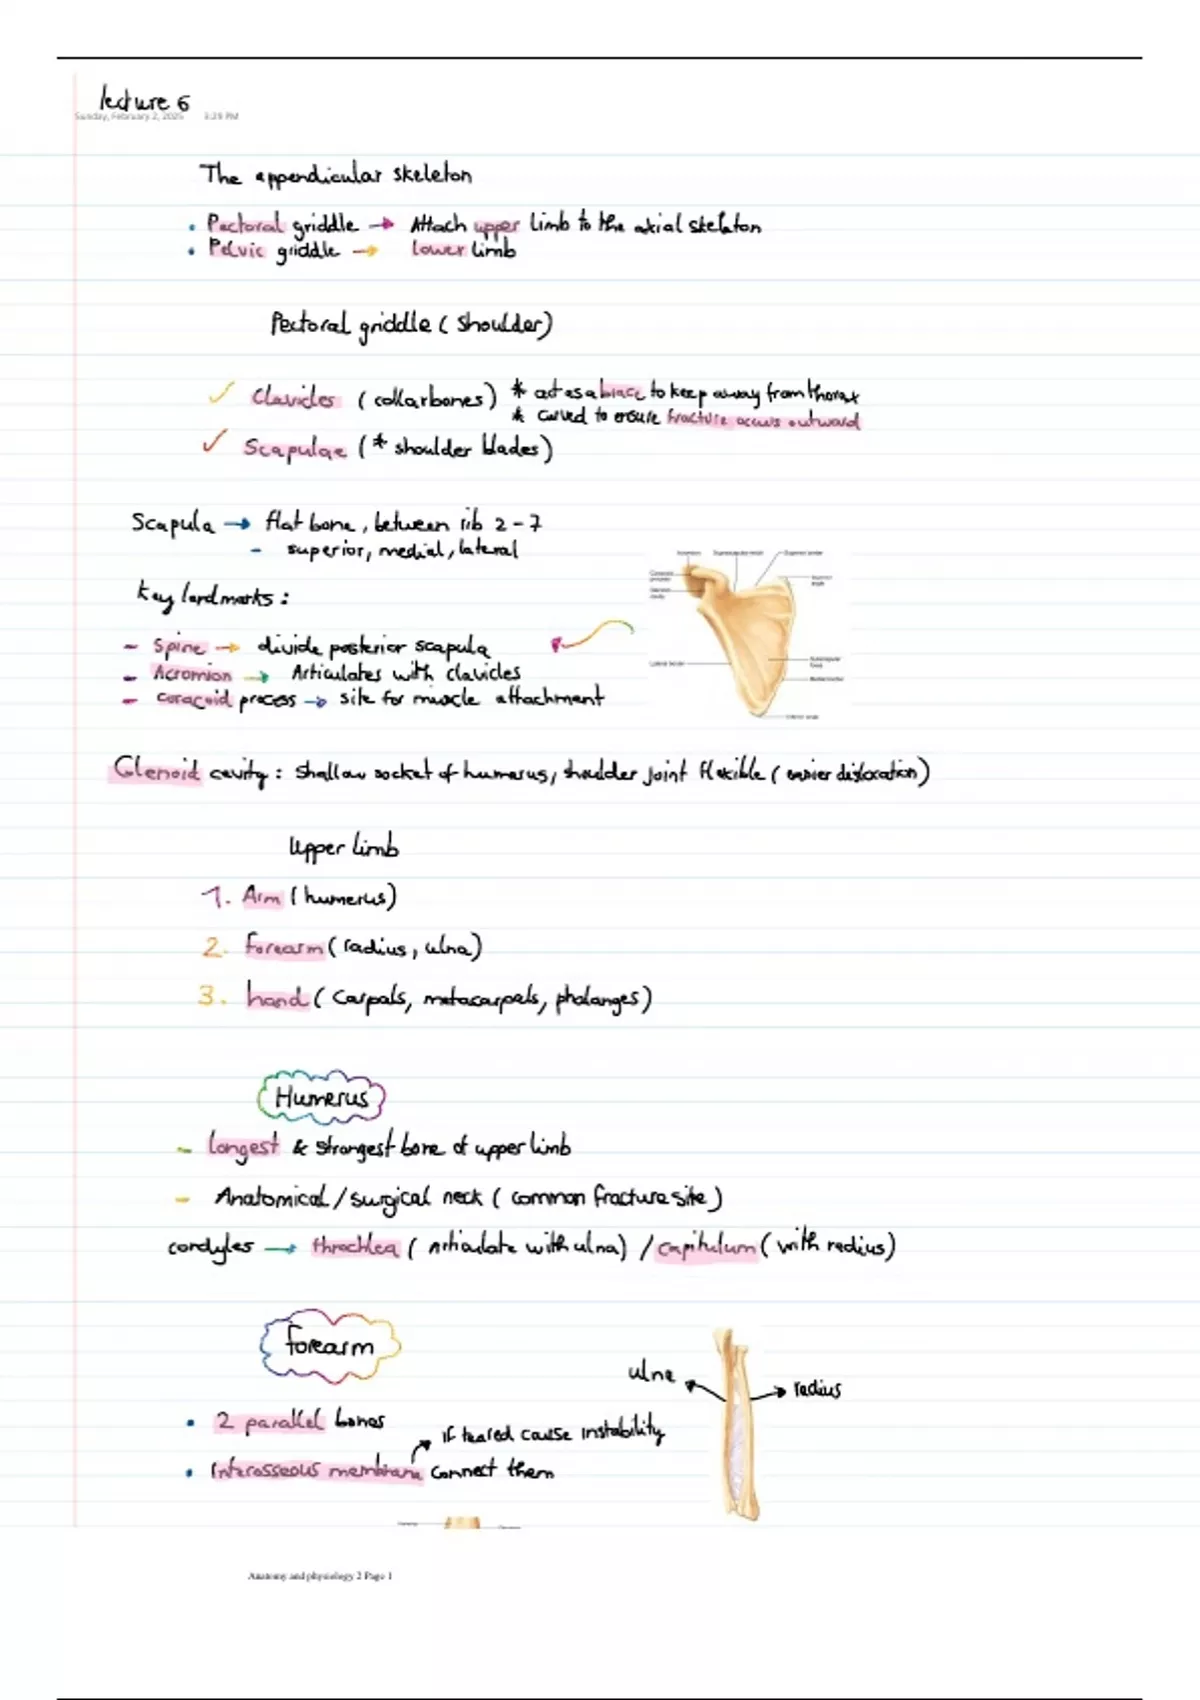 lecture 6
Sunday, February 2, 2025 3:29 PM
The appendicular skeleton
• Pectoral griddle → Attach upper limb to the axial skeleton
• Pelvic griddle → lower limb
Pectoral griddle ( shoulder)
✓ Clavicles ( collarbones) * act as a brace to keep away from thorax
* curved to ensure fracture occurs outward
✓ Scapulae (* shoulder blades)
Scapula → flat bone, between rib 2-7
- superior, medial, lateral
Key landmarks :
- Spine → divide posterior scapula
- Acromion → Articulates with clavicles
- coracoid process → site for muscle attachment
Acromion Suprascapular notch Superior border
Coracoid process
Superior angle
Glenoid cavity
Lateral border
Subscapular fossa
Medial border
Inferior angle
Glenoid cavity : shallow socket of humerus, shoulder joint flexible ( easier dislocation)
Upper limb
1. Arm ( humerus)
2. forearm ( radius, ulna)
3. hand ( carpals, metacarpals, phalanges)
Humerus
- longest & strongest bone of upper limb
- Anatomical / surgical neck ( common fracture site )
condyles → throchlea ( Articulate with ulna) / capitulum ( with radius)
forearm
ulna
radius
• 2 parallel bones
if teared cause instability
• Interosseous membrane connect them
Anatomy and physiology 2 Page 1